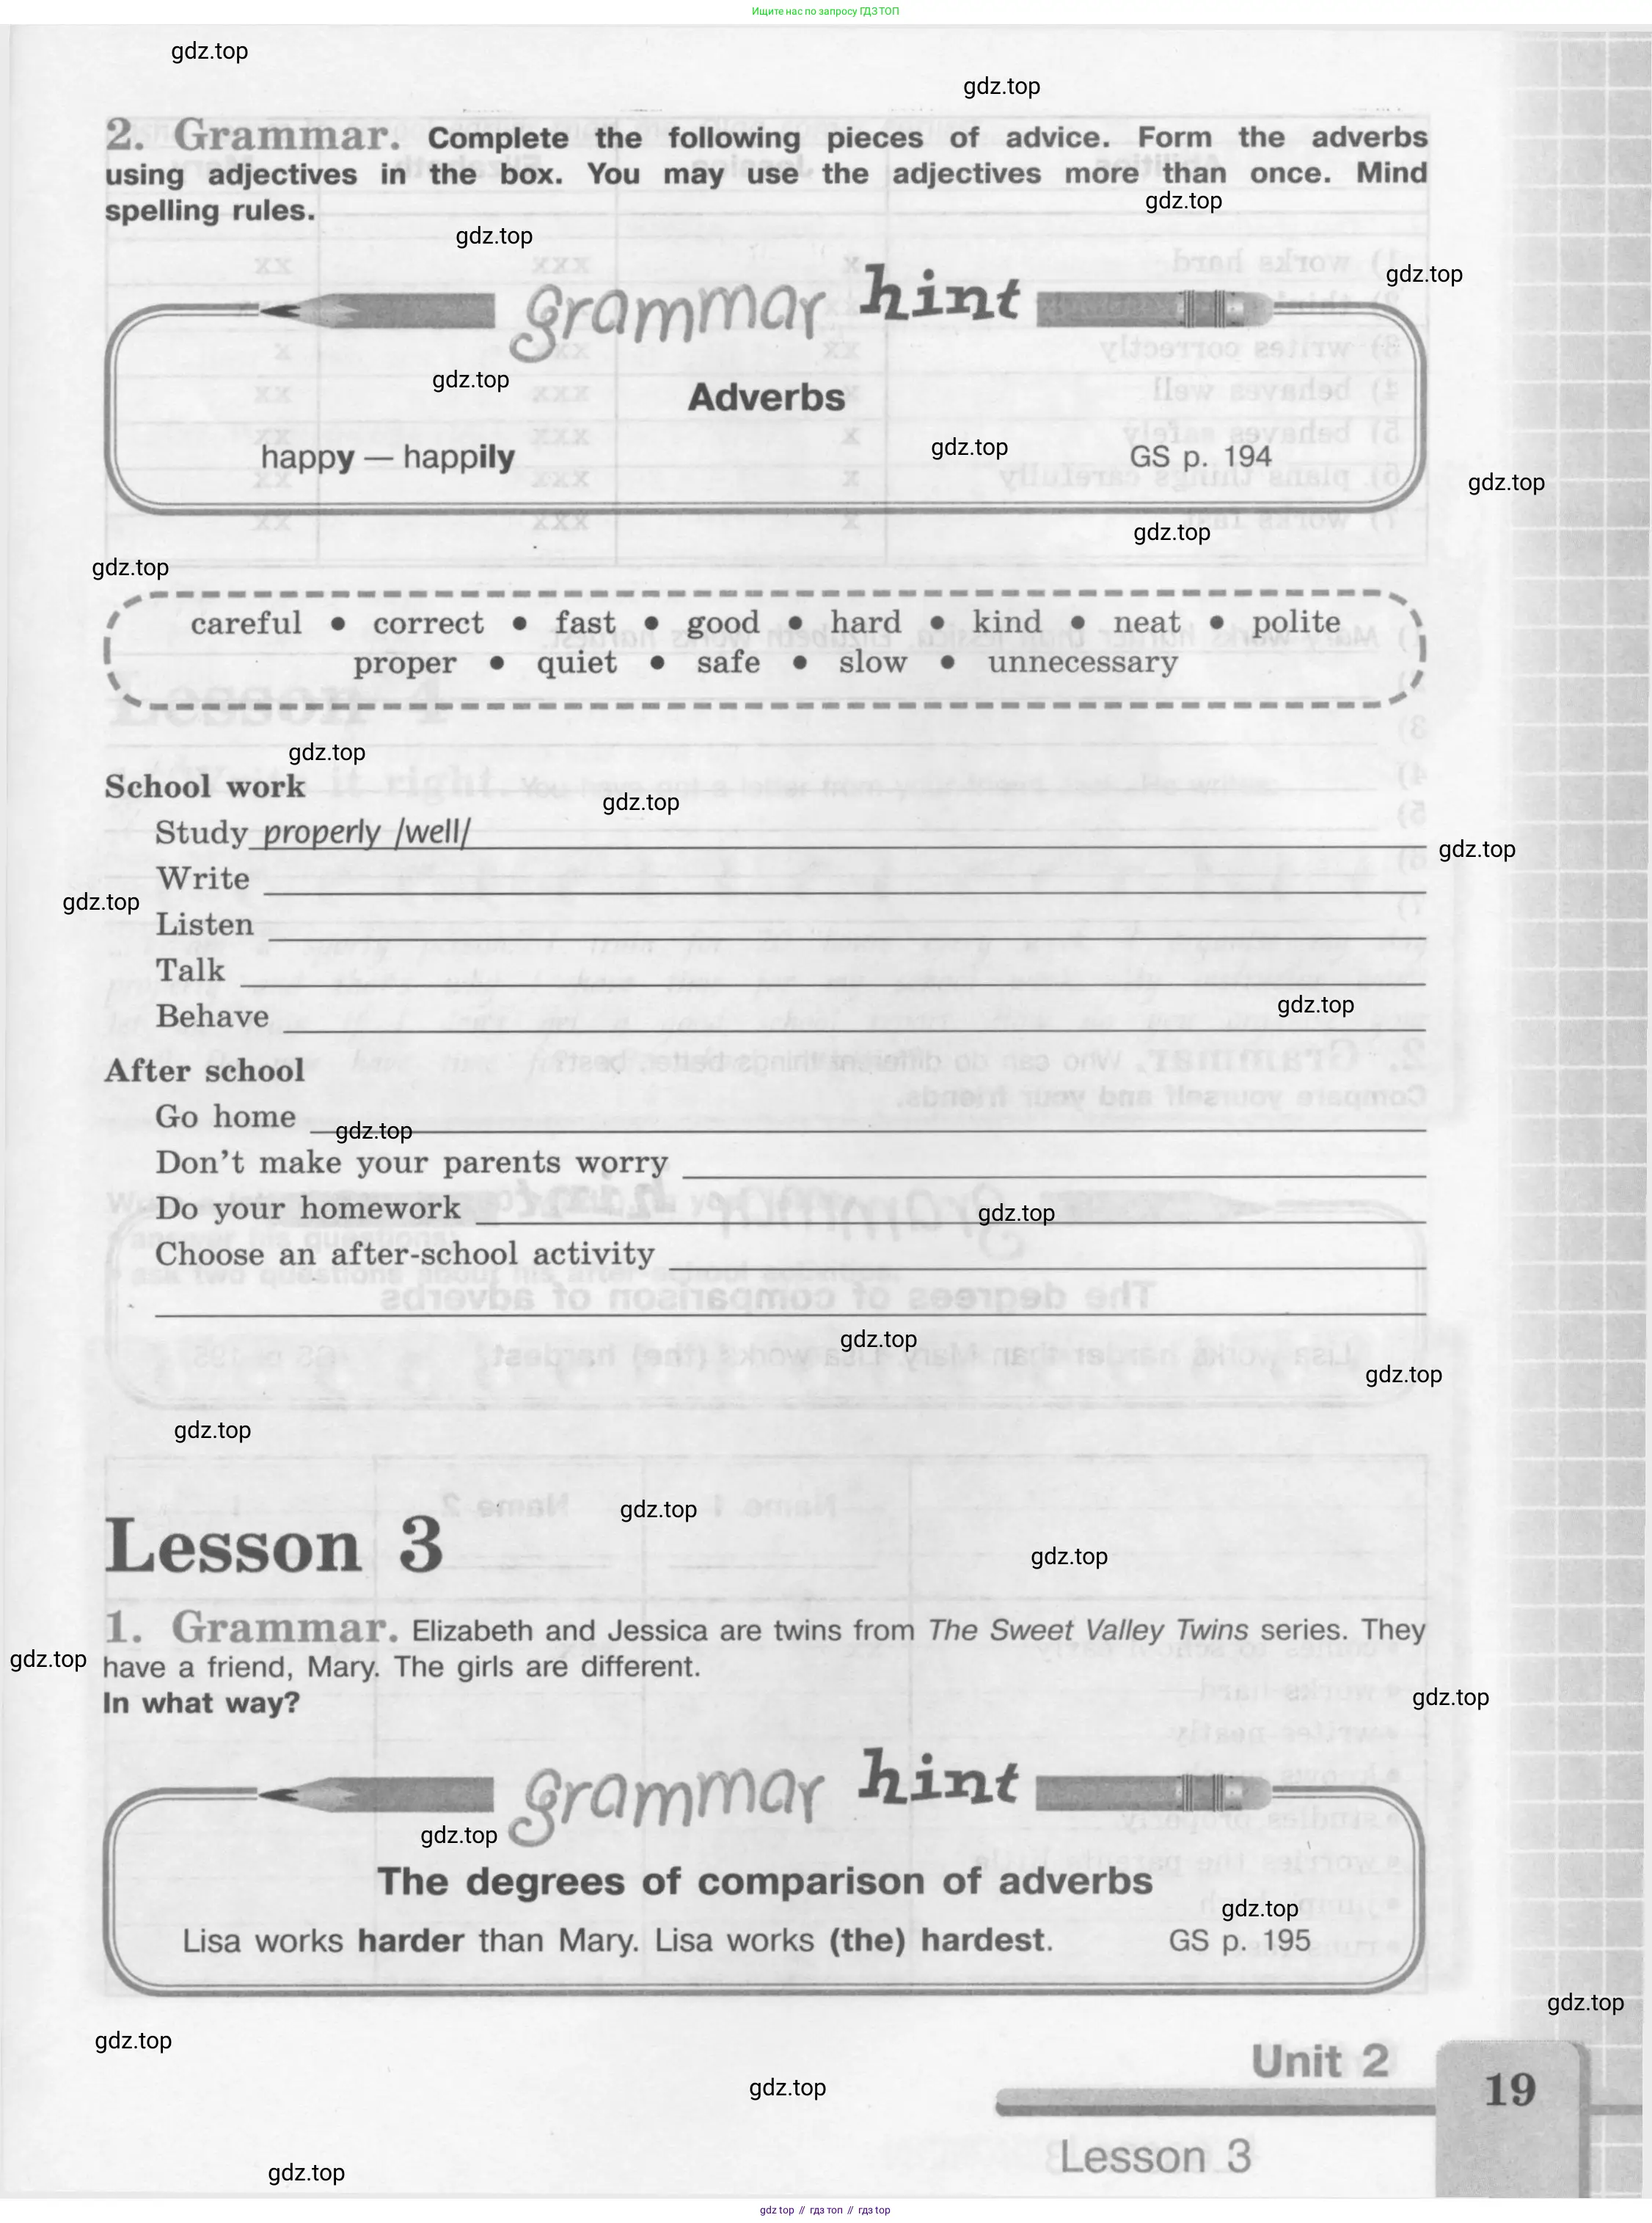 Ищите нас по запросу ГДЗ ТОП
gdz.top
gdz.top
2. Grammar. Complete the following pieces of advice. Form the adverbs
using adjectives in the box. You may use the adjectives more than once. Mind
spelling rules.
gdz.top
gdz.top
gdz.top
grammar hint
gdz.top
Adverbs
happy — happily gdz.top GS p. 194
gdz.top
gdz.top
gdz.top
careful • correct • fast • good • hard • kind • neat • polite
proper • quiet • safe • slow • unnecessary
gdz.top
School work
gdz.top
Study properly /well/
gdz.top
Write
gdz.top
Listen
Talk
gdz.top
Behave
After school
Go home
gdz.top
Don't make your parents worry
Do your homework
gdz.top
Choose an after-school activity
gdz.top
gdz.top
gdz.top
gdz.top
Lesson 3
gdz.top
1. Grammar. Elizabeth and Jessica are twins from The Sweet Valley Twins series. They
gdz.top
have a friend, Mary. The girls are different.
In what way?
gdz.top
grammar hint
gdz.top
The degrees of comparison of adverbs
gdz.top
Lisa works harder than Mary. Lisa works (the) hardest. GS p. 195
gdz.top
gdz.top
Unit 2
gdz.top
19
Lesson 3
gdz.top
gdz top // гдз топ // гдз top